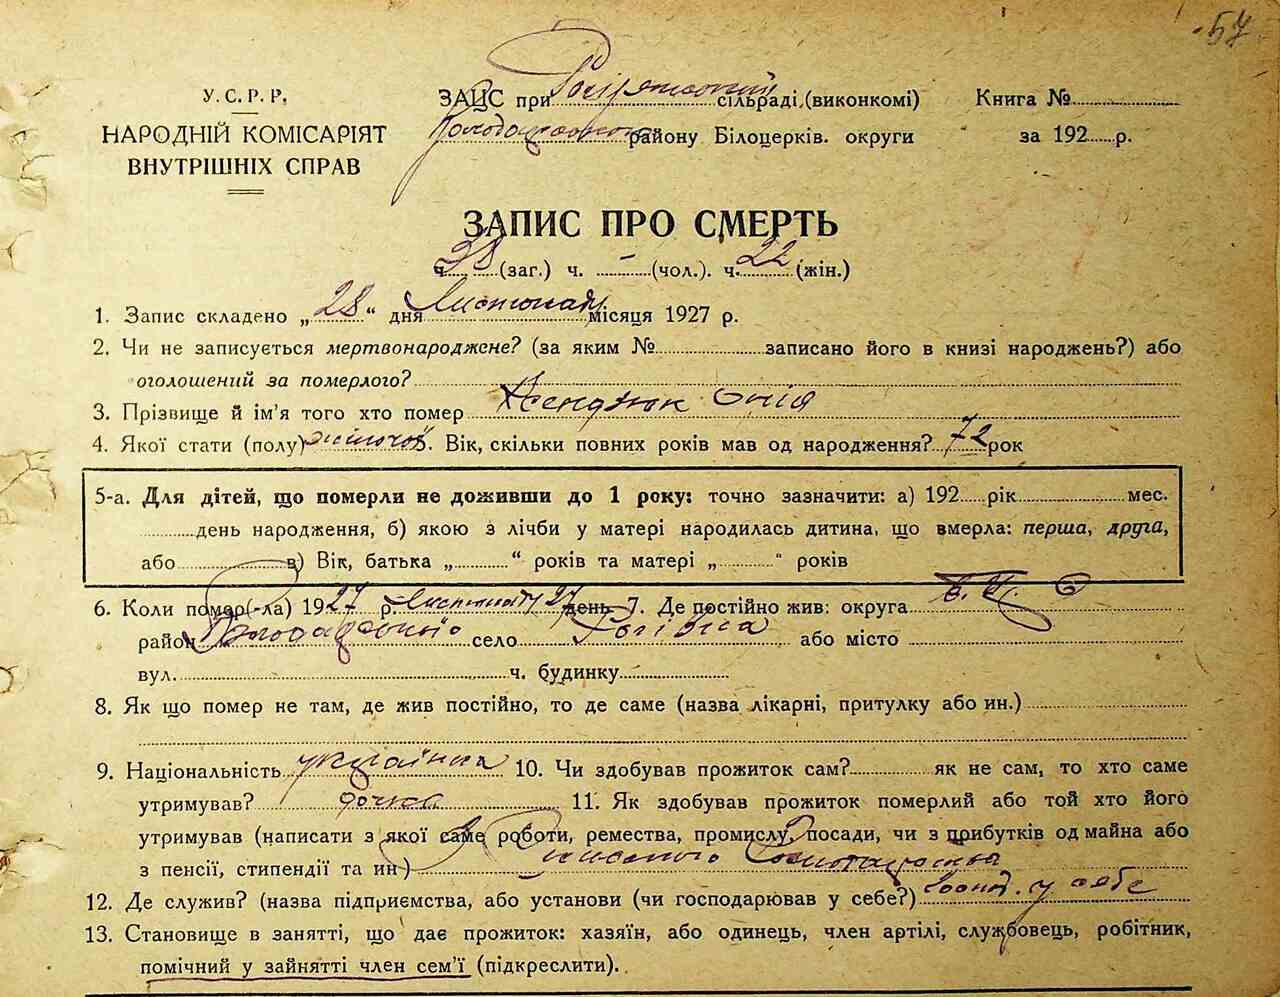 57
У.С.Р.Р.
НАРОДНІЙ КОМІСАРІЯТ
ВНУТРІШНІХ СПРАВ
ЗАЦС при сільраді, (виконкомі)
району Білоцерків. округи
Книга №
за 192 р.
ЗАПИС ПРО СМЕРТЬ
ч. 38 (заг.) ч. - (чол.). ч. 22 (жін.)
1. Запис складено „28“ дня Листопада місяця 1927 р.
2. Чи не записується мертвонароджене? (за яким № записано його в книзі народжень?) або
оголошений за померлого?
3. Прізвище й ім'я того хто помер
4. Якої стати (полу) жіночої. Вік, скільки повних років мав од народження? 72 рок
5-а. Для дітей, що померли не доживши до 1 року: точно зазначити: а) 192 рік мес.
день народження, б) якою з лічби у матері народилась дитина, що вмерла: перша, друга,
або в) Вік, батька „ “ років та матері „ “ років
6. Коли помер(-ла) 1927 р. Листопад 27 день 7. Де постійно жив: округа Б. Ц.
район село або місто
вул. ч. будинку
8. Як що помер не там, де жив постійно, то де саме (назва лікарні, притулку або ин.)
9. Національність українка 10. Чи здобував прожиток сам? як не сам, то хто саме
утримував? дочка 11. Як здобував прожиток померлий або той хто його
утримував (написати з якої саме роботи, ремества, промислу, посади, чи з прибутків од майна або
з пенсії, стипендії та ин.) З сільського господарства
12. Де служив? (назва підприємства, або установи (чи господарював у себе?) госпид. у себе
13. Становище в занятті, що дає прожиток: хазяїн, або одинець, член артілі, службовець, робітник,
помічний у зайнятті член сем'ї (підкреслити).